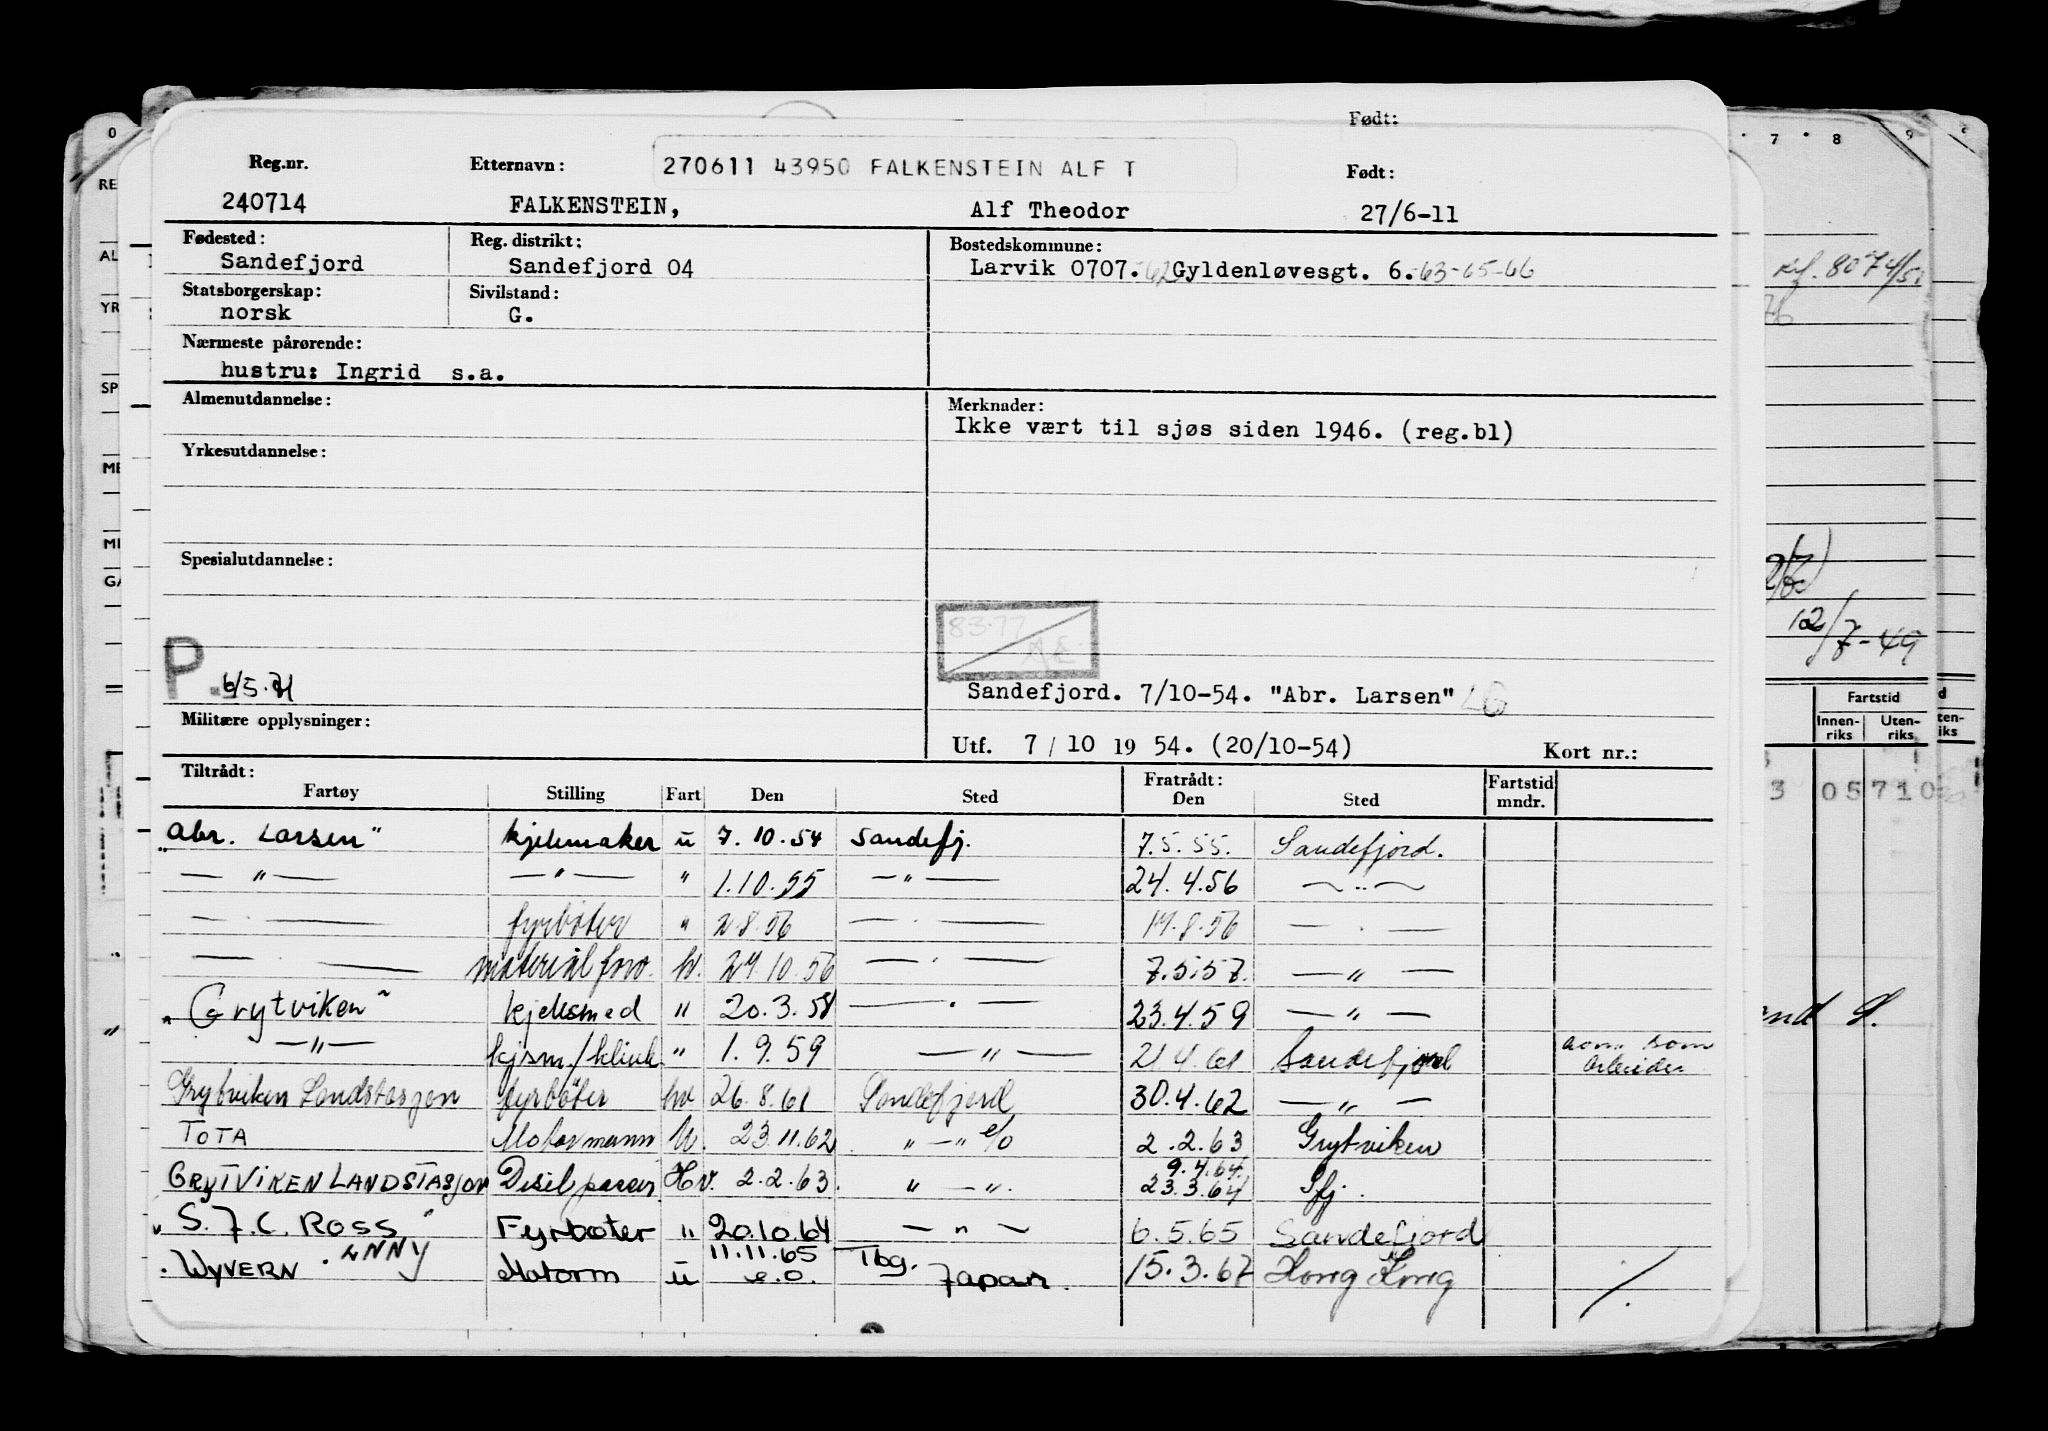 Født:
Reg.nr. Etternavn: 270611 43950 FALKENSTEIN ALF T Født:
240714 FALKENSTEIN, Alf Theodor 27/6-11
Fødested: Reg. distrikt: Bostedskommune:
Sandefjord Sandefjord 04 Larvik 0707.-62 Gyldenløvesgt. 6.-63-65-66
Statsborgerskap: Sivilstand:
norsk G.
Nærmeste pårørende:
hustru: Ingrid s.a.
Almenutdannelse: Merknader:
Ikke vært til sjøs siden 1946. (reg.bl)
Yrkesutdannelse:
Spesialutdannelse:
83·77
P.
Sandefjord. 7/10-54. "Abr. Larsen" LG
Militære opplysninger:
Utf. 7/10 19 54. (20/10-54) Kort nr.:
Tiltrådt: Fratrådt: Fartstid
Fartøy Stilling Fart Den Sted Den Sted mndr.
"Abr. Larsen" kjelemaker u 7.10.54 Sandefj. 7.5.55. Sandefjord.
— " — — " — " 1.10.55 — " — 24.4.56 — " —
— " — fyrbøter " 2.8.56 — " — 17.8.56 — " —
— " — material forv. hv. 29.10.56 — " — 7.5.57. — " —
"Grytviken" kjelesmed " 20.3.58 — " — 23.4.59 — " —
— " — kjsm./klink " 1.9.59 — " — 21.4.61 Sandefjord som arbeider
Grytviken Landstasjon fyrbøter hv 26.8.61 Sandefjord 30.4.62 — " —
TOTA Motormann U. 23.11.62 " — " e/o 2.2.63 Grytviken
9.4.64.
GRYTVIKEN LANDSTASJON Diselpasser Hv. 2.2.63. " — ". 23.3.64 Sfj.
"S. J. C. ROSS" Fyrbøter " 20.10.64 — " — 6.5.65 Sandefjord
WYVERN Motorm u 11.11.65 e.o. Tbg. Japan. 15.3.67 Hong Kong
RE
AL
YR
SP
ME
MI
GA
0 7 8 9
12/7-49
Fartstid
Innen-riks Uten-riks
3 05710